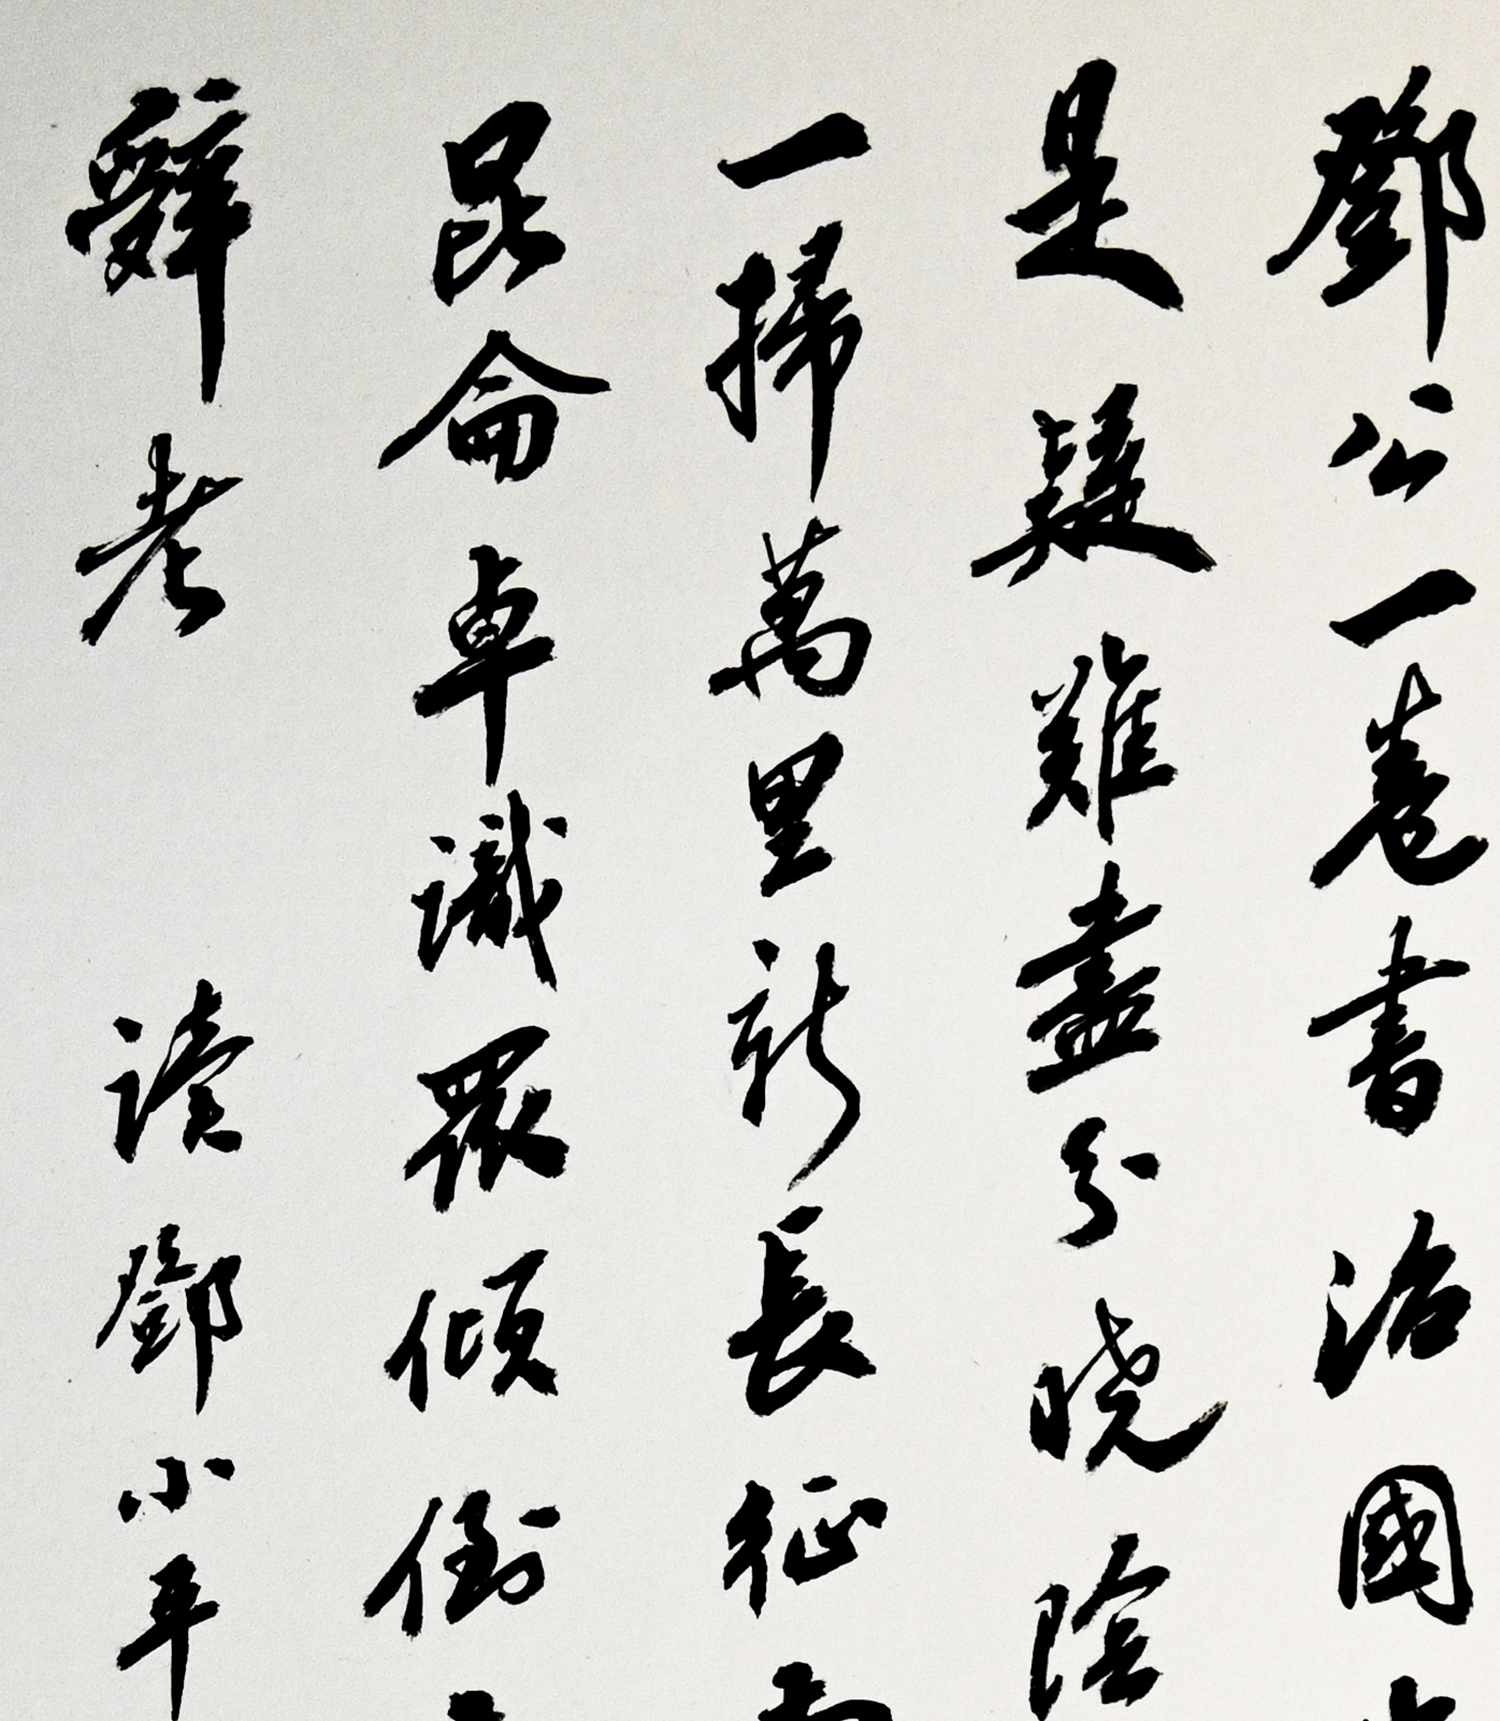 鄧公一卷書治國
是疑難盡分曉陰
一掃萬里新長征
昆侖卓識眾傾倒
辭老 读鄧小平